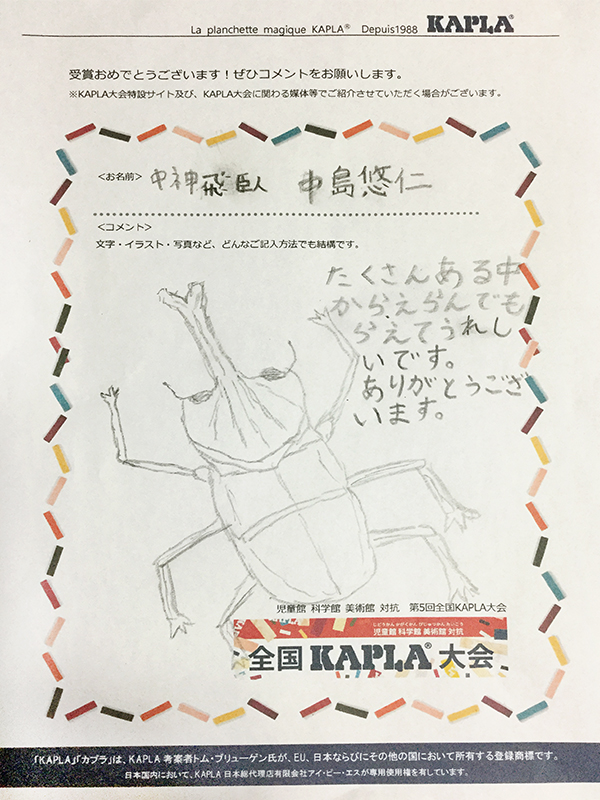 La planchette magique KAPLA® Depuis1988 KAPLA®
受賞おめでとうございます！ぜひコメントをお願いします。
※KAPLA大会特設サイト及び、KAPLA大会に関わる媒体等でご紹介させていただく場合がございます。
<お名前> 中神飛臣人 中島悠仁
<コメント>
文字・イラスト・写真など、どんなご記入方法でも結構です。
たくさんある中
からえらんでも
らえてうれし
いです。
ありがとうござ
います。
児童館 科学館 美術館 対抗 第5回全国KAPLA大会
じどうかん かがくかん びじゅつかん たいこう
児童館 科学館 美術館 対抗
全国 KAPLA® 大会
「KAPLA」「カプラ」は、KAPLA 考案者トム・ブリューゲン氏が、EU、日本ならびにその他の国において所有する登録商標です。
日本国内において、KAPLA 日本総代理店有限会社アイ・ピー・エスが専用使用権を有しています。